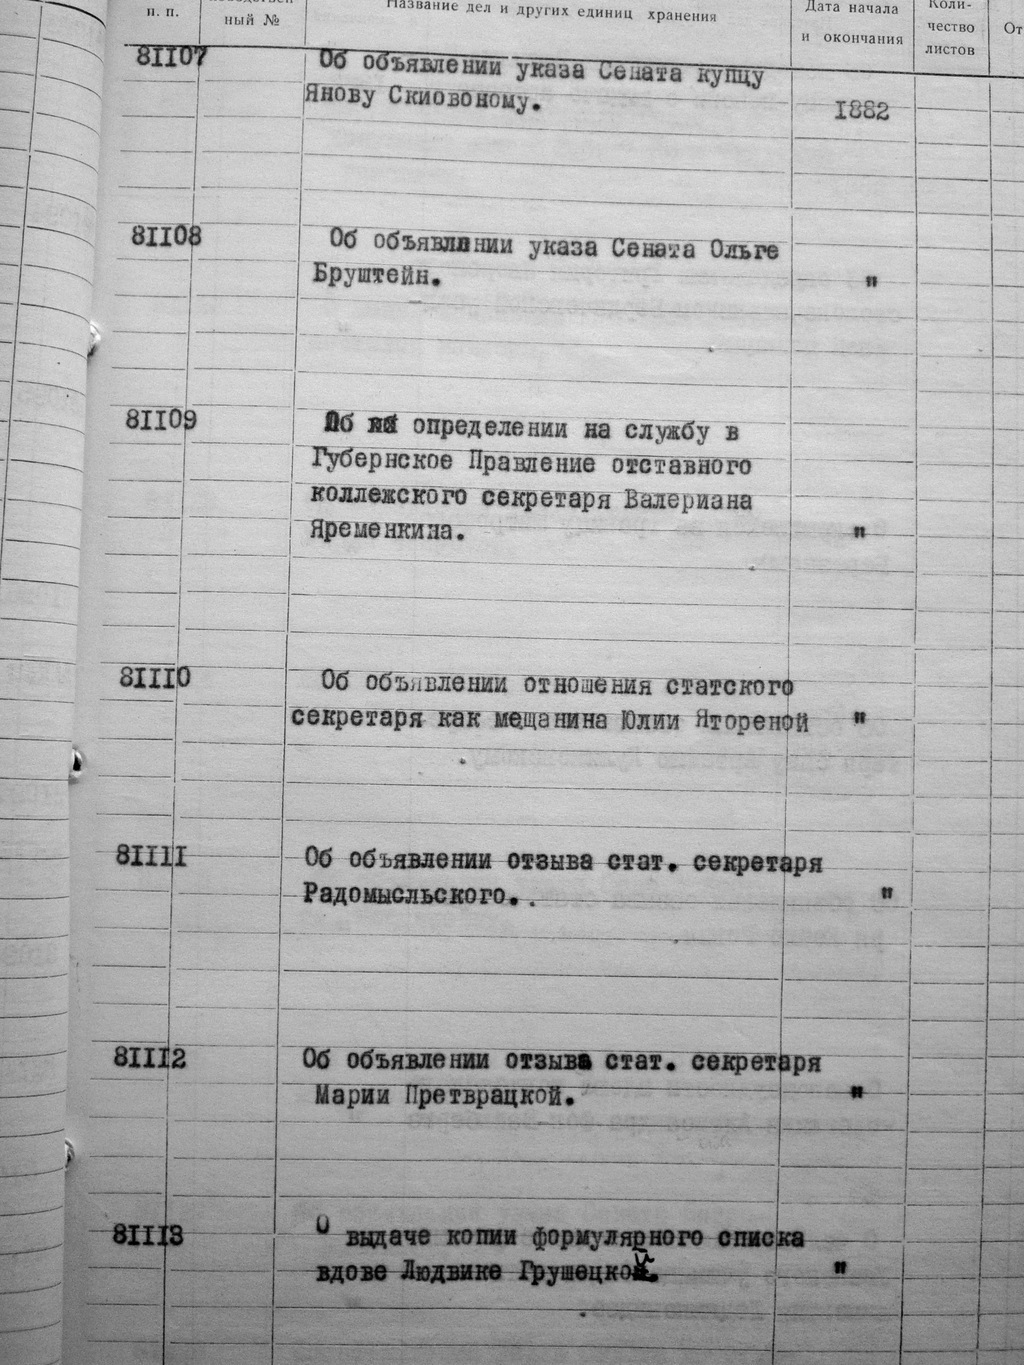 п. п.
ный №
Название дел и других единиц хранения
Дата начала
и окончания
Коли-
чество
листов
От
81107
Об объявлении указа Сената купцу
Янову Скиовоному.
1882
81108
Об объявлнии указа Сената Ольге
Бруштейн.
"
81109
Об определении на службу в
Губернское Правление отставного
коллежского секретаря Валериана
Яременкина.
"
81110
Об объявлении отношения статского
секретаря как мещанина Юлии Ятореной
"
81111
Об объявлении отзыва стат. секретаря
Радомысльского..
"
81112
Об объявлении отзыва стат. секретаря
Марии Претврацкой.
"
81113
О выдаче копии формулярного списка
вдове Людвике Грушецкой.
"